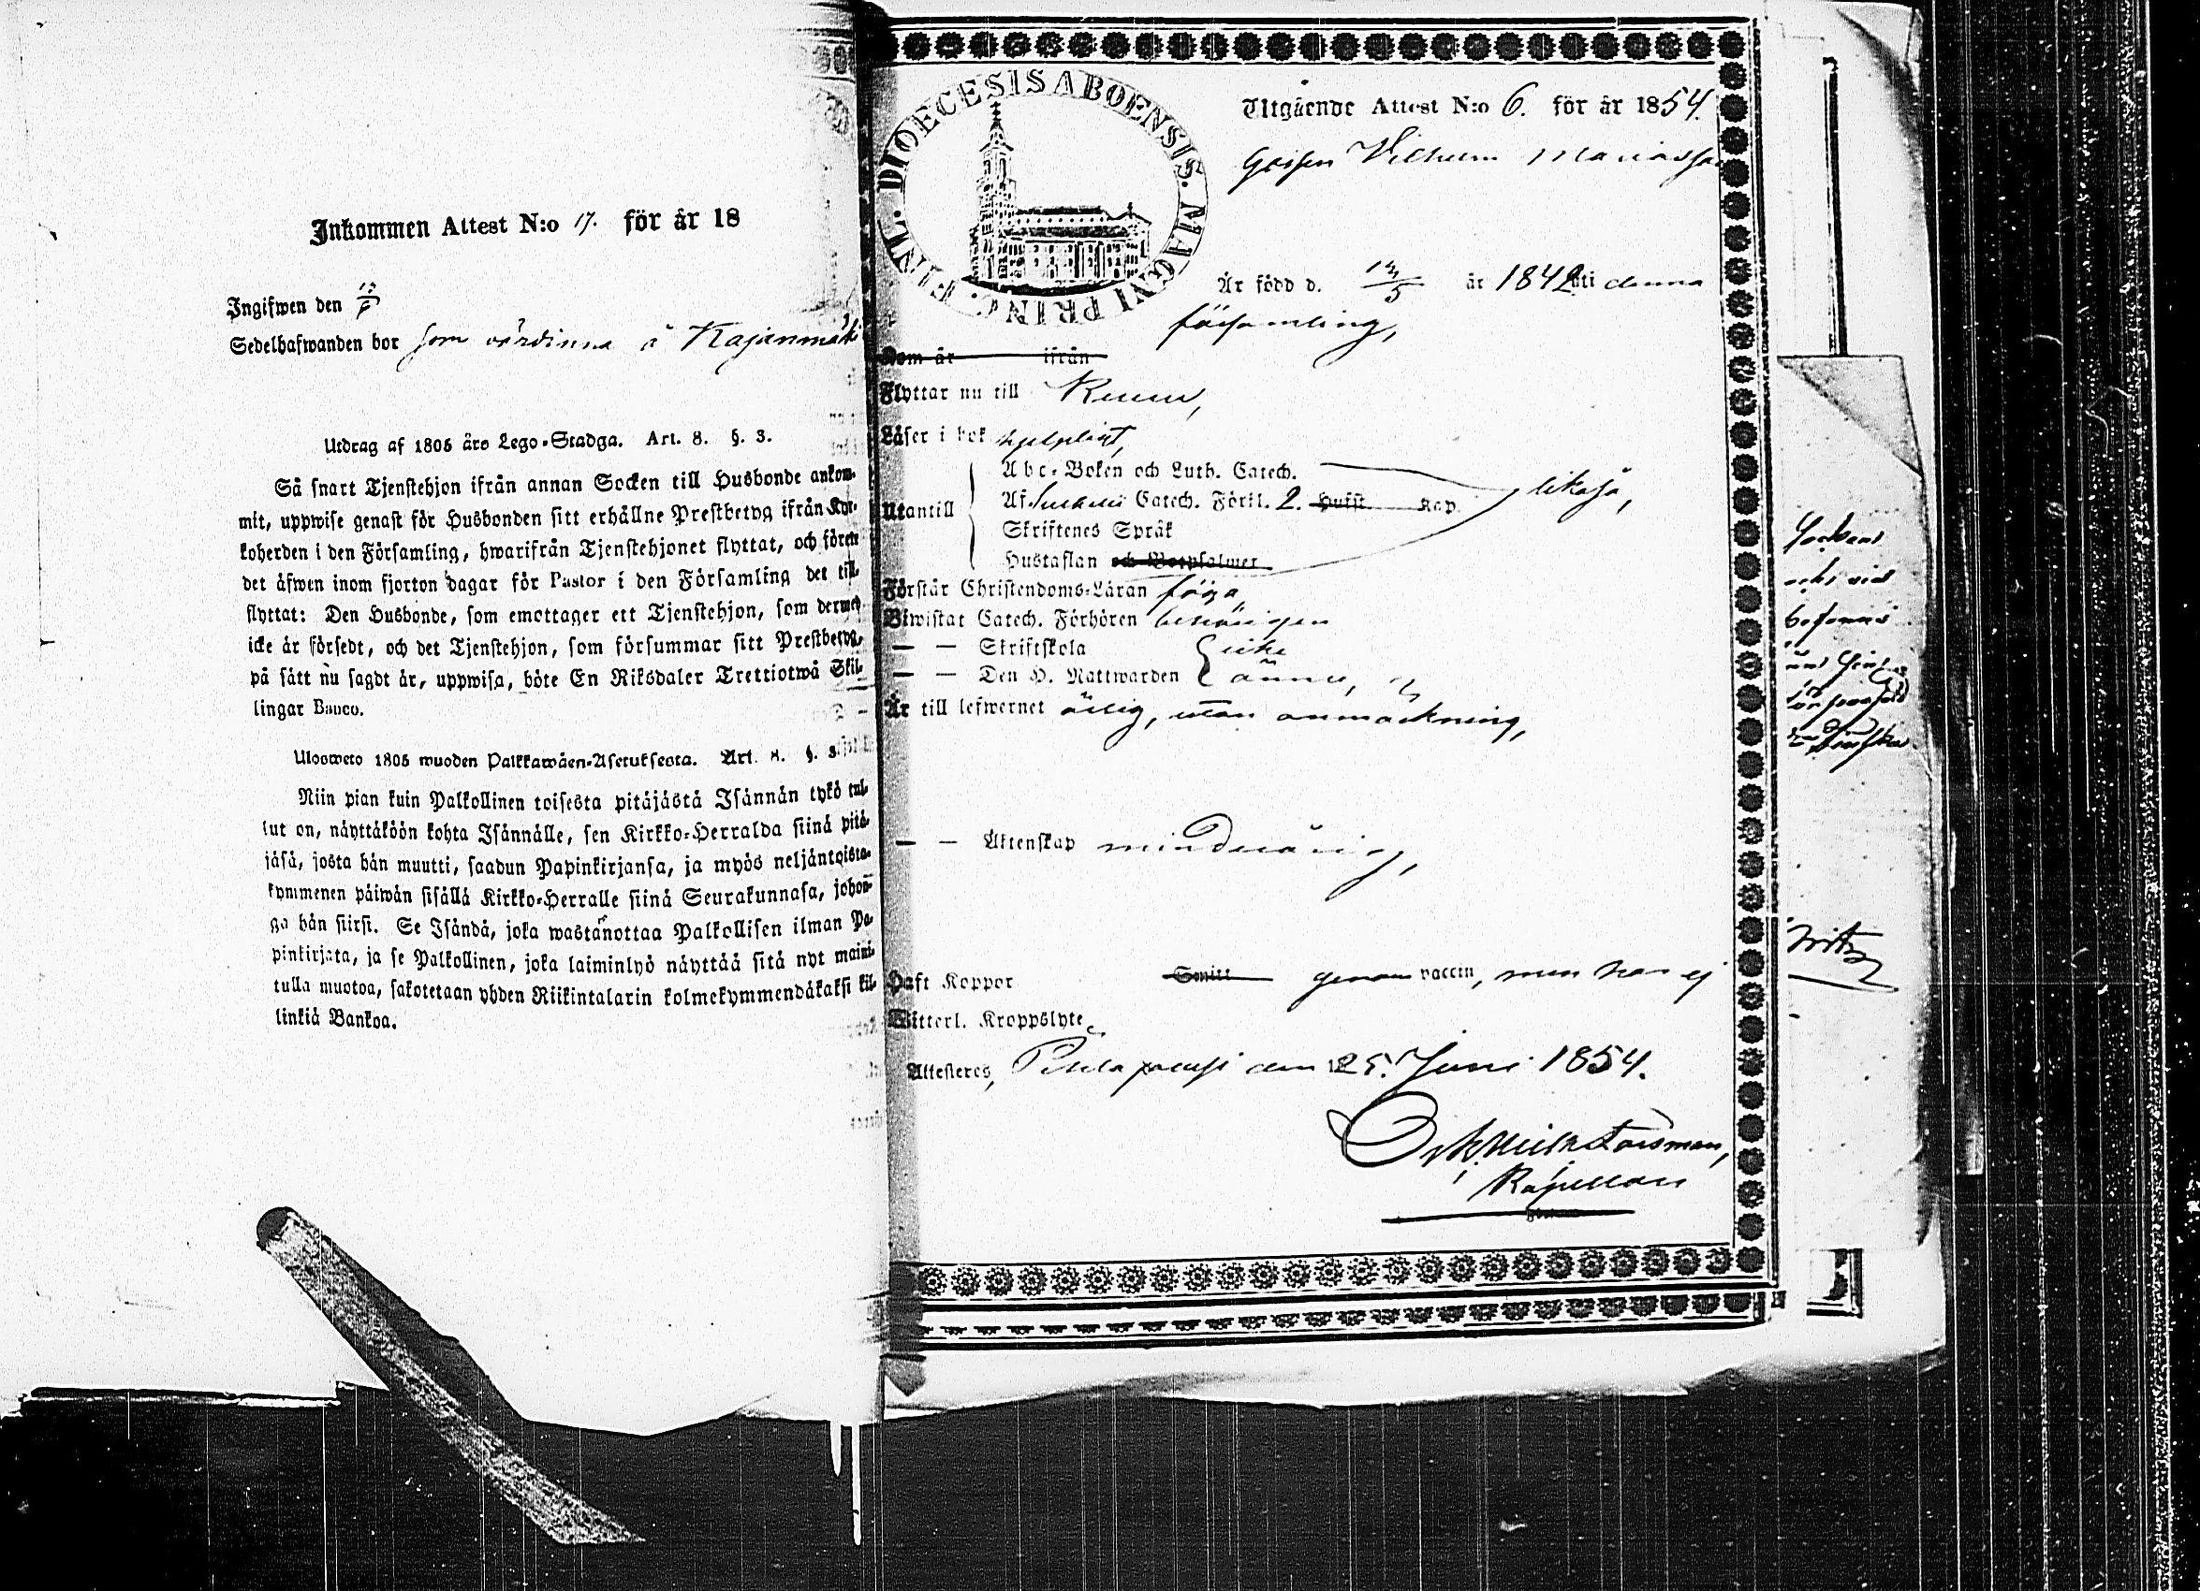 Inkommen Attest N:o 17. för år 18
Ingifwen den
Sedelhafwanden bor som värdinna å Kajanmäki
Utdrag af 1805 års Lego-Stadga. Art. 8. §. 3.
Så snart Tjenstehjon ifrån annan Socken till Husbonde ankom-
mit, uppwise genast för Husbonden sitt erhållne Prestbetyg ifrån Kyr-
koherden i den Församling, hwarifrån Tjenstehjonet flyttat, och förete
det äfwen inom fjorton dagar för Pastor i den Församling det till-
flyttat: Den Husbonde, som emottager ett Tjenstehjon, som dermed
icke är försedt, och det Tjenstehjon, som försummar sitt Prestbetyg,
på sätt nu sagdt är, uppwisa, böte En Riksdaler Trettiotwå Skil-
lingar Banco.
Ulosweto 1805 wuoden Palkkawäen-Asetuksesta. Art. 8. §. 3
Niin pian kuin Palkollinen toisesta pitäjästä Isännän tykö tul-
lut on, näyttäköön kohta Isännälle, sen Kirkko-Herralda siinä pitä-
jäsä, josta hän muutti, saadun Papinkirjansa, ja myös neljäntoista-
kymmenen päiwän sisällä Kirkko-Herralle siinä Seurakunnasa, johon-
ga hän siirsi. Se Isändä, joka wastanottaa Palkollisen ilman Pa-
pinkirjata, ja se Palkollinen, joka laiminlyö näyttää sitä nyt maini-
tulla muotoa, sakotetaan yhden Riikintalarin kolmekymmendäkaksi kil-
linkiä Bankoa.
FINL. DIOECESIS ABOENSIS. MAGNI PRINC.
Utgående Attest N:o 6. för år 1854.
Gossen Vilhelm
Är född d. 13/5 år 1842 uti denna
församling,
Som är ifrån
Flyttar nu till
Läser i bok hjelpligt,
Utantill
Abc-Boken och Luth. Catech.
Af Svebelii Catech. Förkl. 2. Hufst. Kap. likaså,
Skriftenes Språk
Hustaflan och Botpsalmer
Förstår Christendoms-Läran föga
Biwistat Catech. Förhören behörigen
— — Skriftskola icke
— — Den H. Nattwarden ännu,
Är till lefwernet ärlig, utan anmärkning,
— — Äktenskap minderårig,
Haft Koppor Smitt genom vaccin, men har ej
Witterl. Kroppslyte
Attesteras, den 25. Juni 1854.
Forsman,
Kapellan